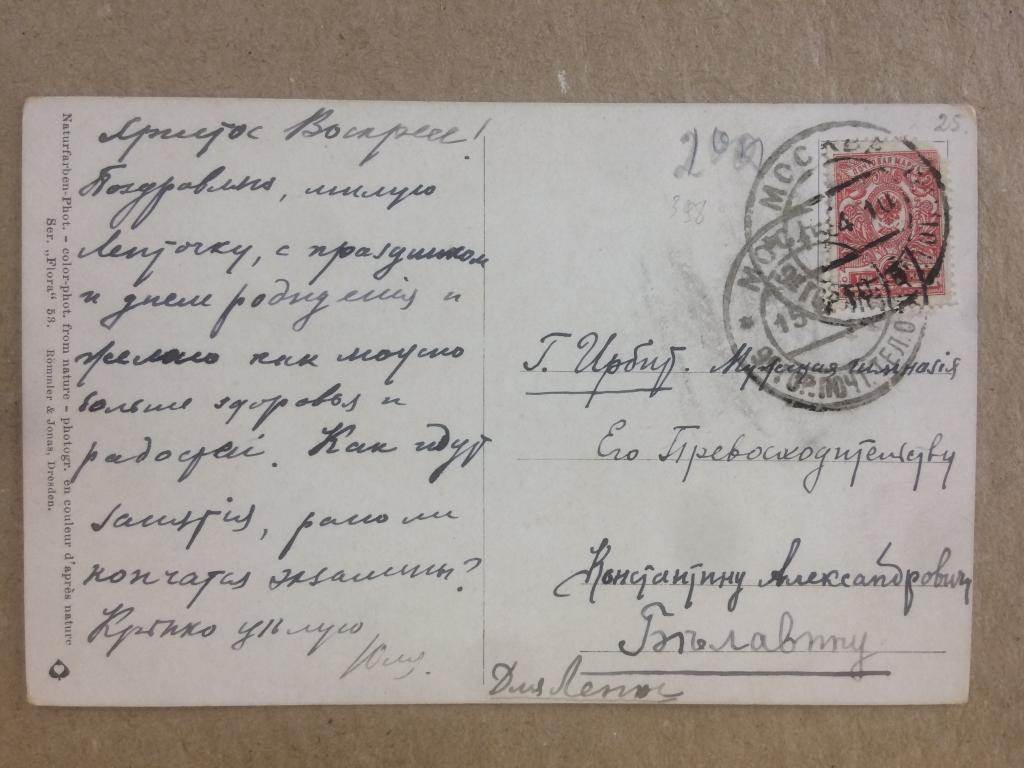 Христос Воскресе!
Поздравляю, милую
Леночку, с праздником
и днем рождения и
желаю как можно
больше здоровья и
радостей. Как идут
занятія, рано ли
кончатся экзамены?
Крѣпко цѣлую
Юля.
Г. Ирбит. Мужская гимназія
Его Превосходительству
Константину Александровичу
Бѣлавину
Для Лены
25.
398
МОСКВА
4 10
МОСКВА
15
Naturfarben-Phot. – color-phot. from nature – photogr. en couleur d'après nature
Ser. „Flora" 53. Rommler & Jonas, Dresden.